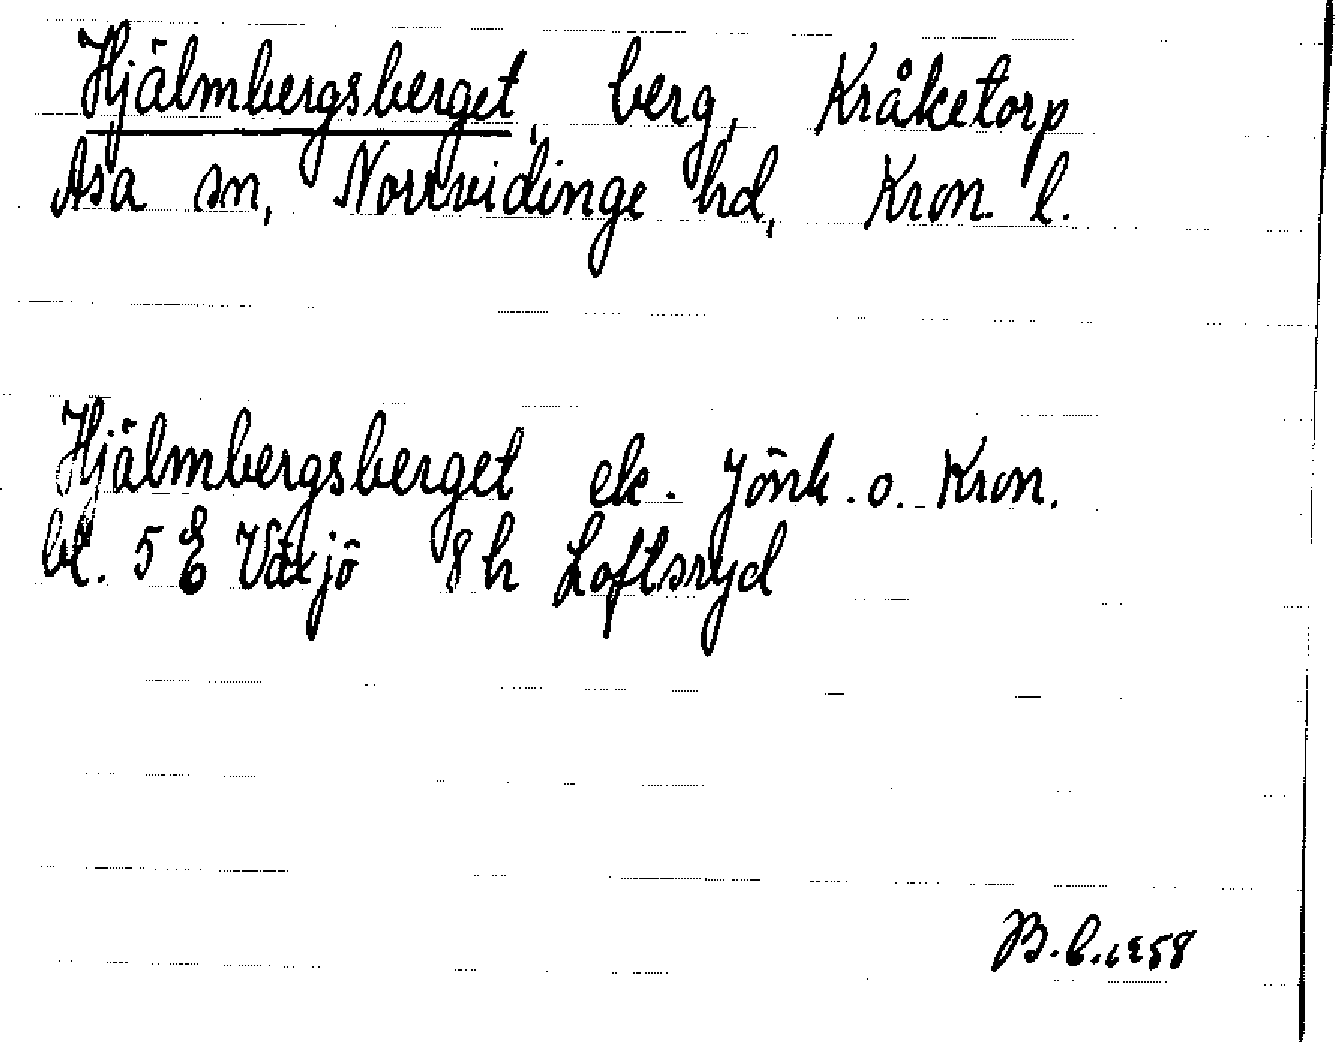 Hjälmbergsberget, berg, Kråketorp
Asa sn, Norrvidinge hd, Kron. l.
Hjälmbergsberget ek. Jönk. o. Kron.
bl. 5 E Växjö 8 h Loftsryd